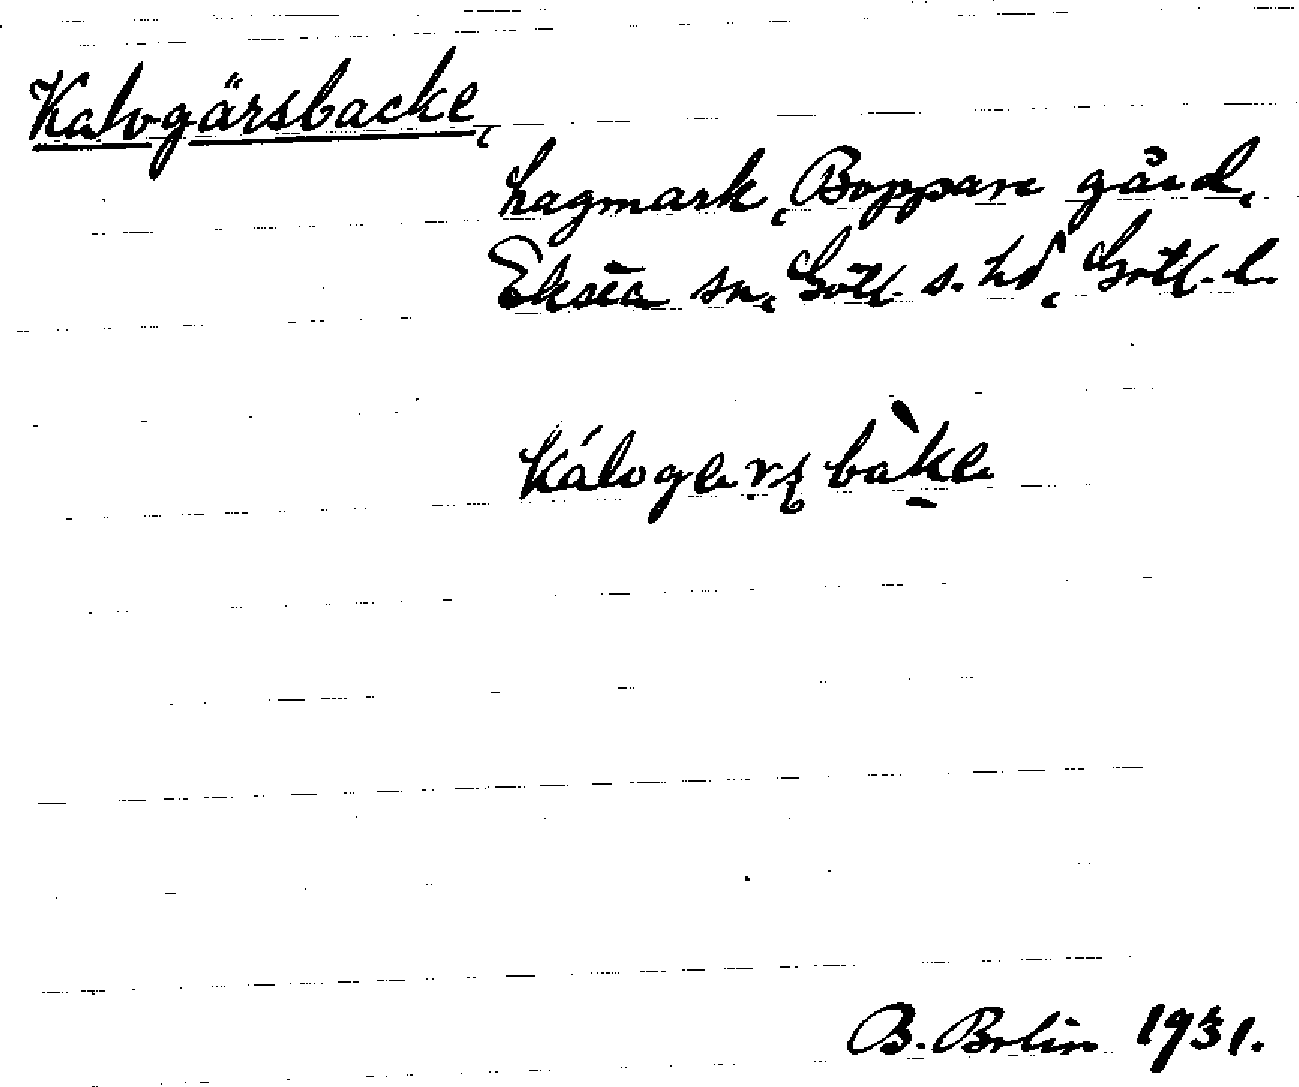 Kalvgärsbacke,
hagmark, Boppare gård,
Eksta sn, Gotl. s. hd, Gotl. l.
kálvgers bàke
B. Bolin 1931.